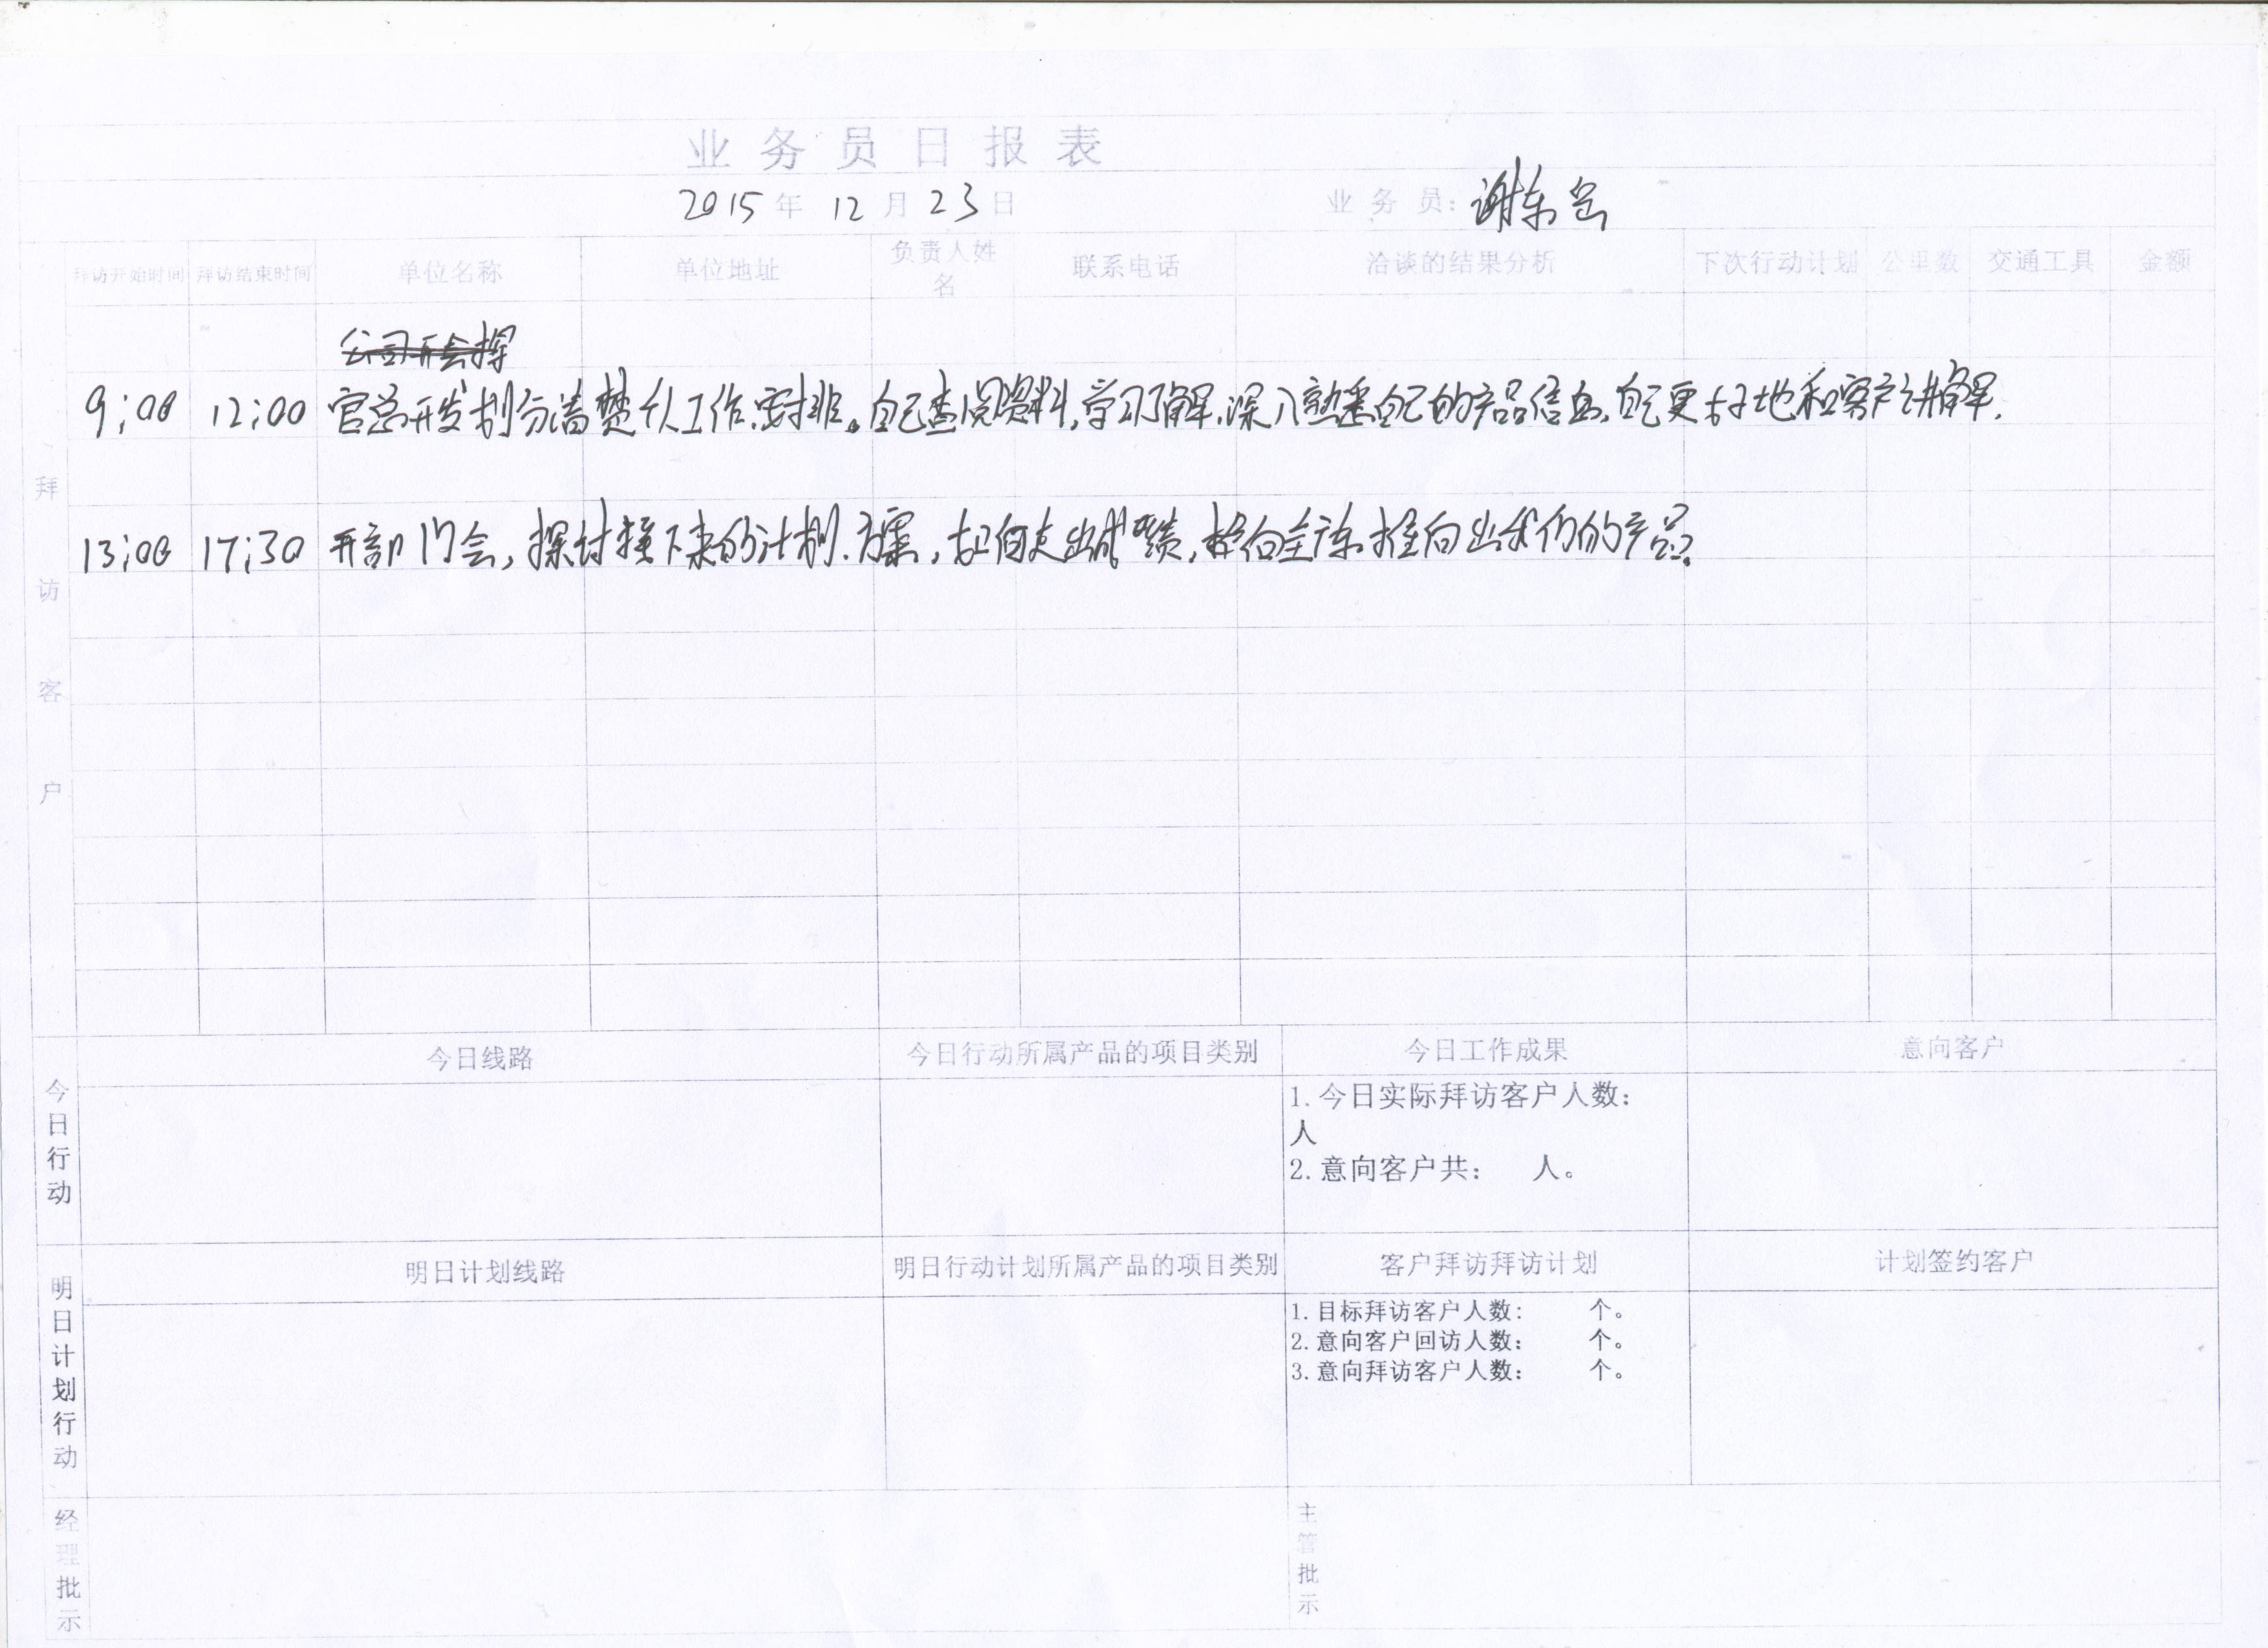 业务员日报表
2015年 12月23日 业务员:谢东
拜访开始时间 拜访结束时间 单位名称 单位地址 负责人姓名 联系电话 洽谈的结果分析 下次行动计划 公里数 交通工具 金额
公司开会探
9:00 12:00 官总开发划分清楚个人工作安排。自己查阅资料,学习了解.深入熟悉自己的产品信息,自己更好地和客户讲解.
13:00 17:30 开部门会,探讨接下来的计划.方案,如何走出成绩,推向出我们的产品.
拜访客户
今日线路 今日行动所属产品的项目类别 今日工作成果 意向客户
今日行动
1.今日实际拜访客户人数:
人
2.意向客户共: 人。
明日计划线路 明日行动计划所属产品的项目类别 客户拜访拜访计划 计划签约客户
明日计划行动
1.目标拜访客户人数: 个。
2.意向客户回访人数: 个。
3.意向拜访客户人数: 个。
经理批示 主管批示